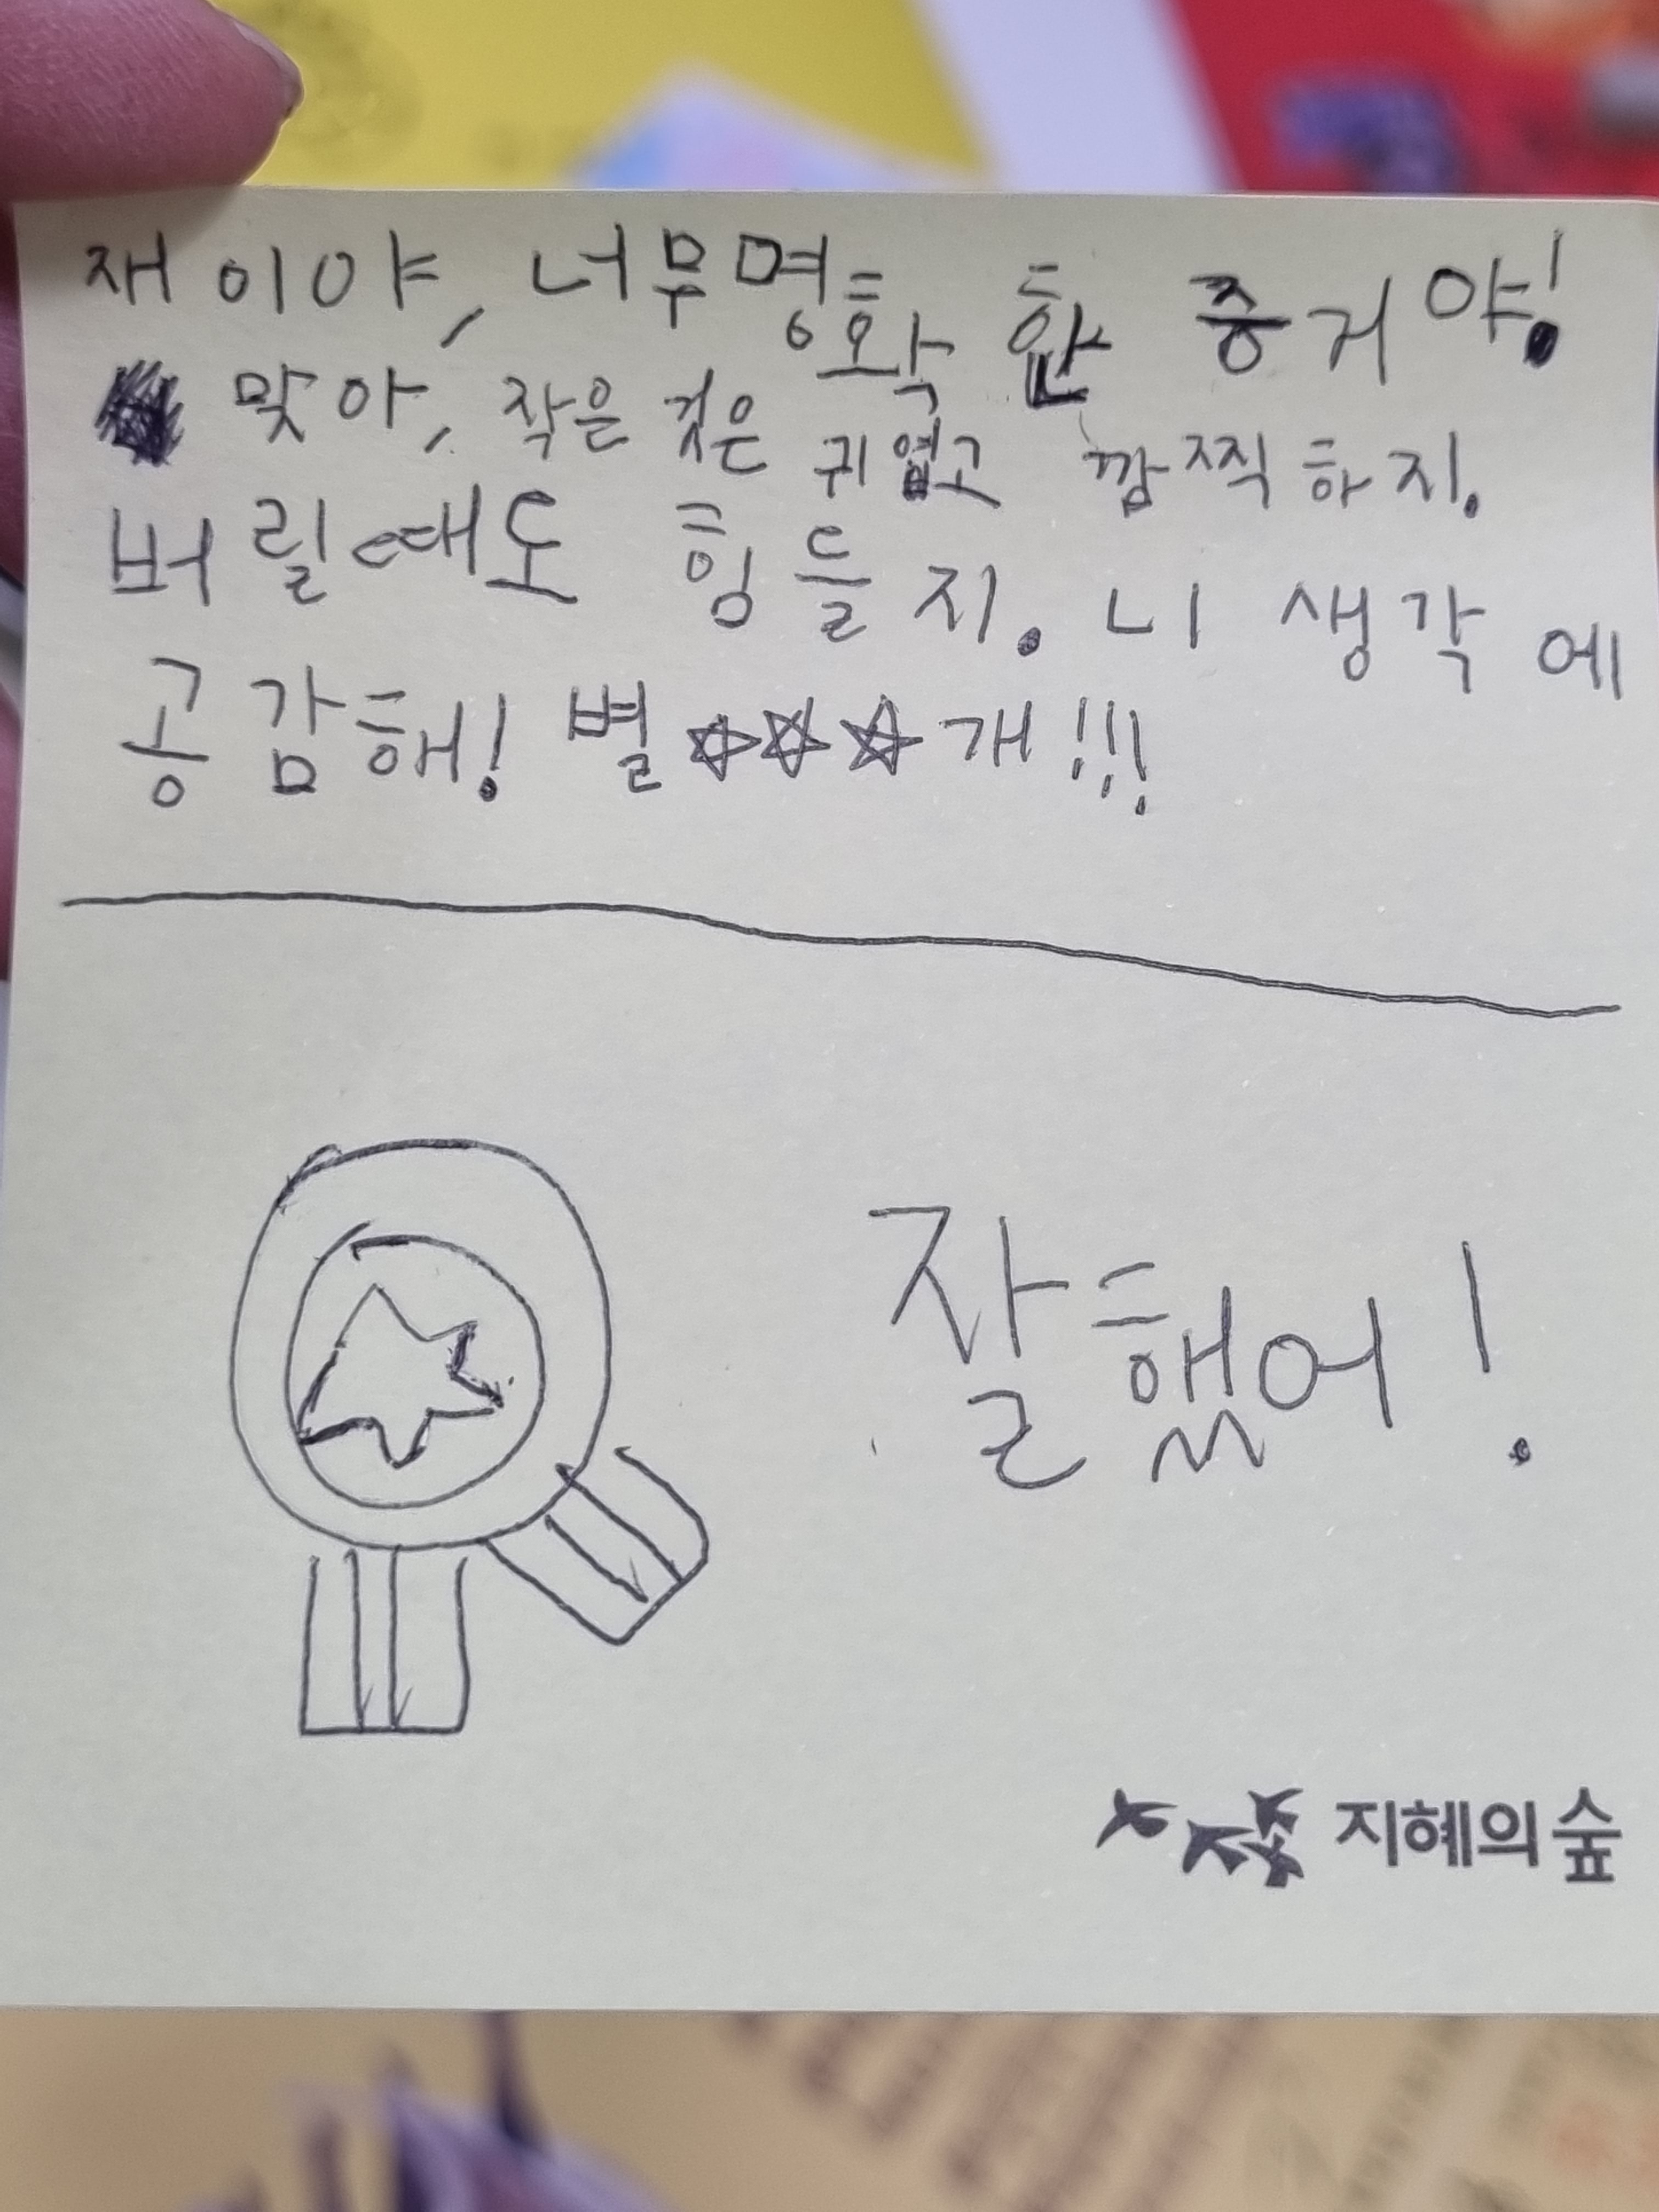 재이야, 너무 명확한 증거야!
맞아, 작은 것은 귀엽고 깜찍하지.
버릴때도 힘들지. 니 생각에
공감해! 별☆☆☆개!!!
잘했어!
지혜의숲